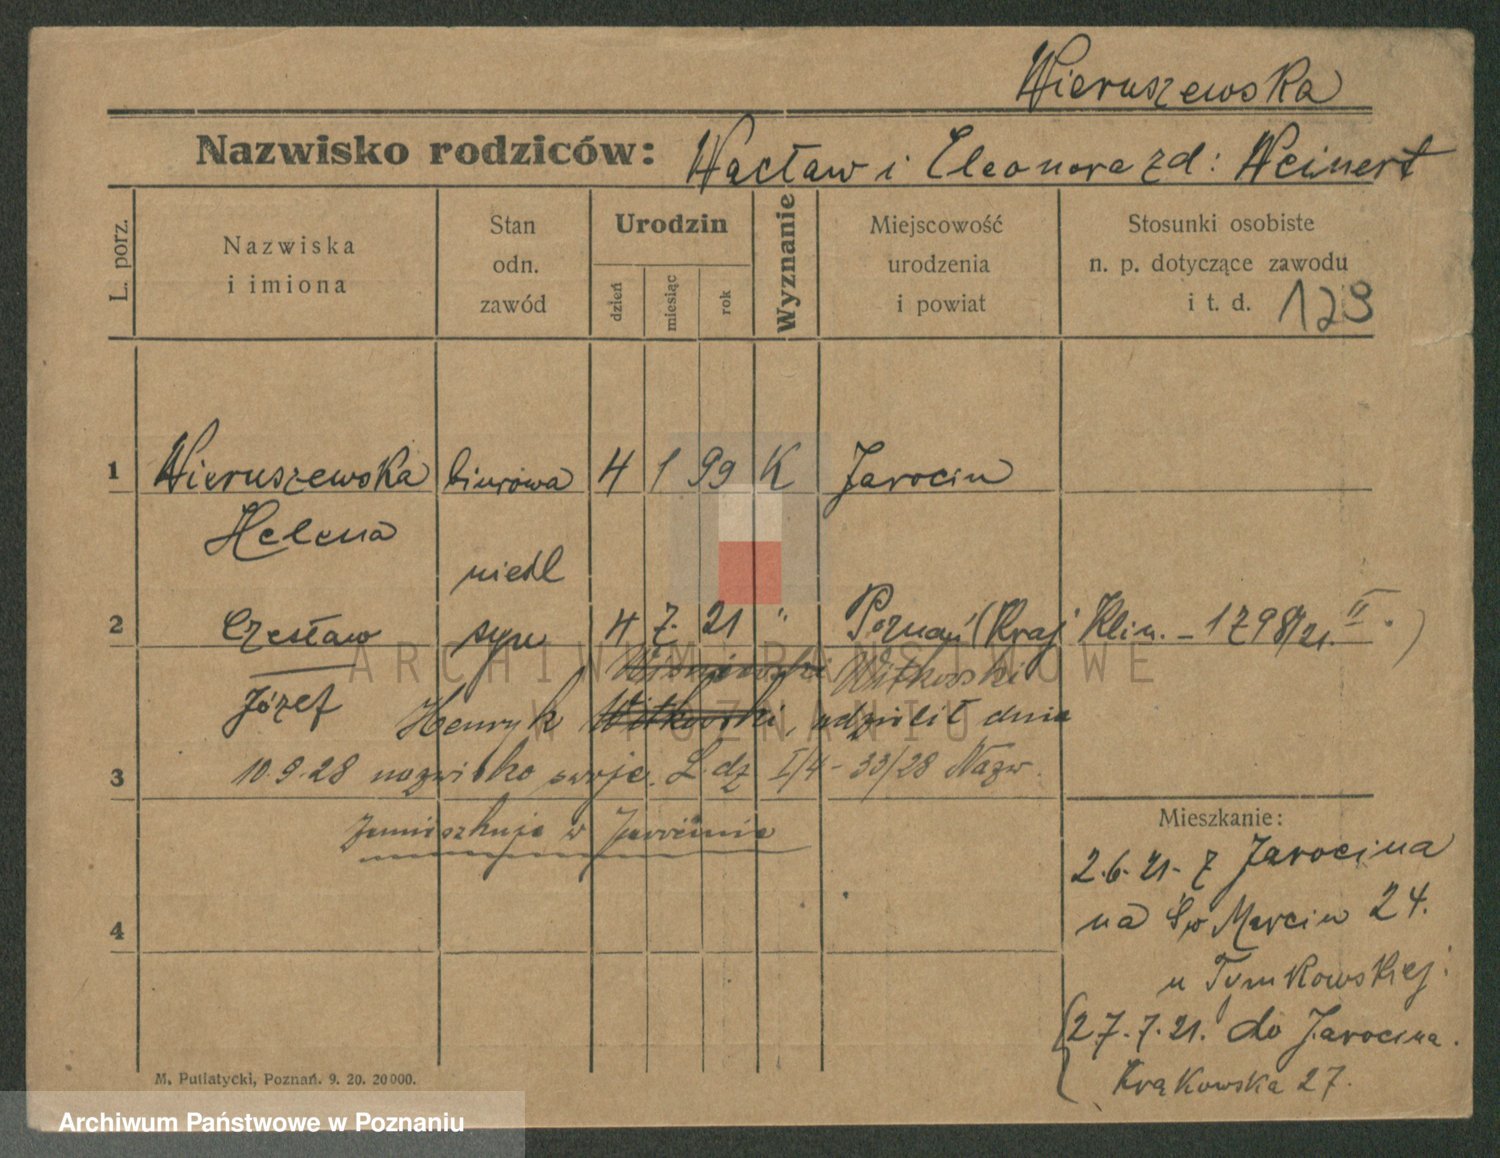 Wieruszewska
Nazwisko rodziców: Wacław i Eleonora zd: Weinert
L. porz.
Nazwiska
i imiona
Stan
odn.
zawód
Urodzin
dzień
miesiąc
rok
Wyznanie
Miejscowość
urodzenia
i powiat
Stosunki osobiste
n. p. dotyczące zawodu
i t. d. 123
1 Wieruszewska biurowa 4 1 99 K Jarocin
Helena
niedl
2 Czesław syn 4 7. 21 " Poznań (Kraj Klin. - 1798/21. II.)
Witkowski
Józef Henryk Witkowski, udzielił dnia
3 10.9.28 nazwisko swoje. L. dz I/4 - 33/28 Nazw.
zamieszkuje w Jarocinie
4
Mieszkanie:
2.6.21. z Jarocina
na Św Marcin 24.
u Tumkowskiej.
(27.7.21. do Jarocina.
Krakowska 27.
M. Putiatycki, Poznań. 9. 20. 20000.
ARCHIWUM PAŃSTWOWE
W POZNANIU
Archiwum Państwowe w Poznaniu